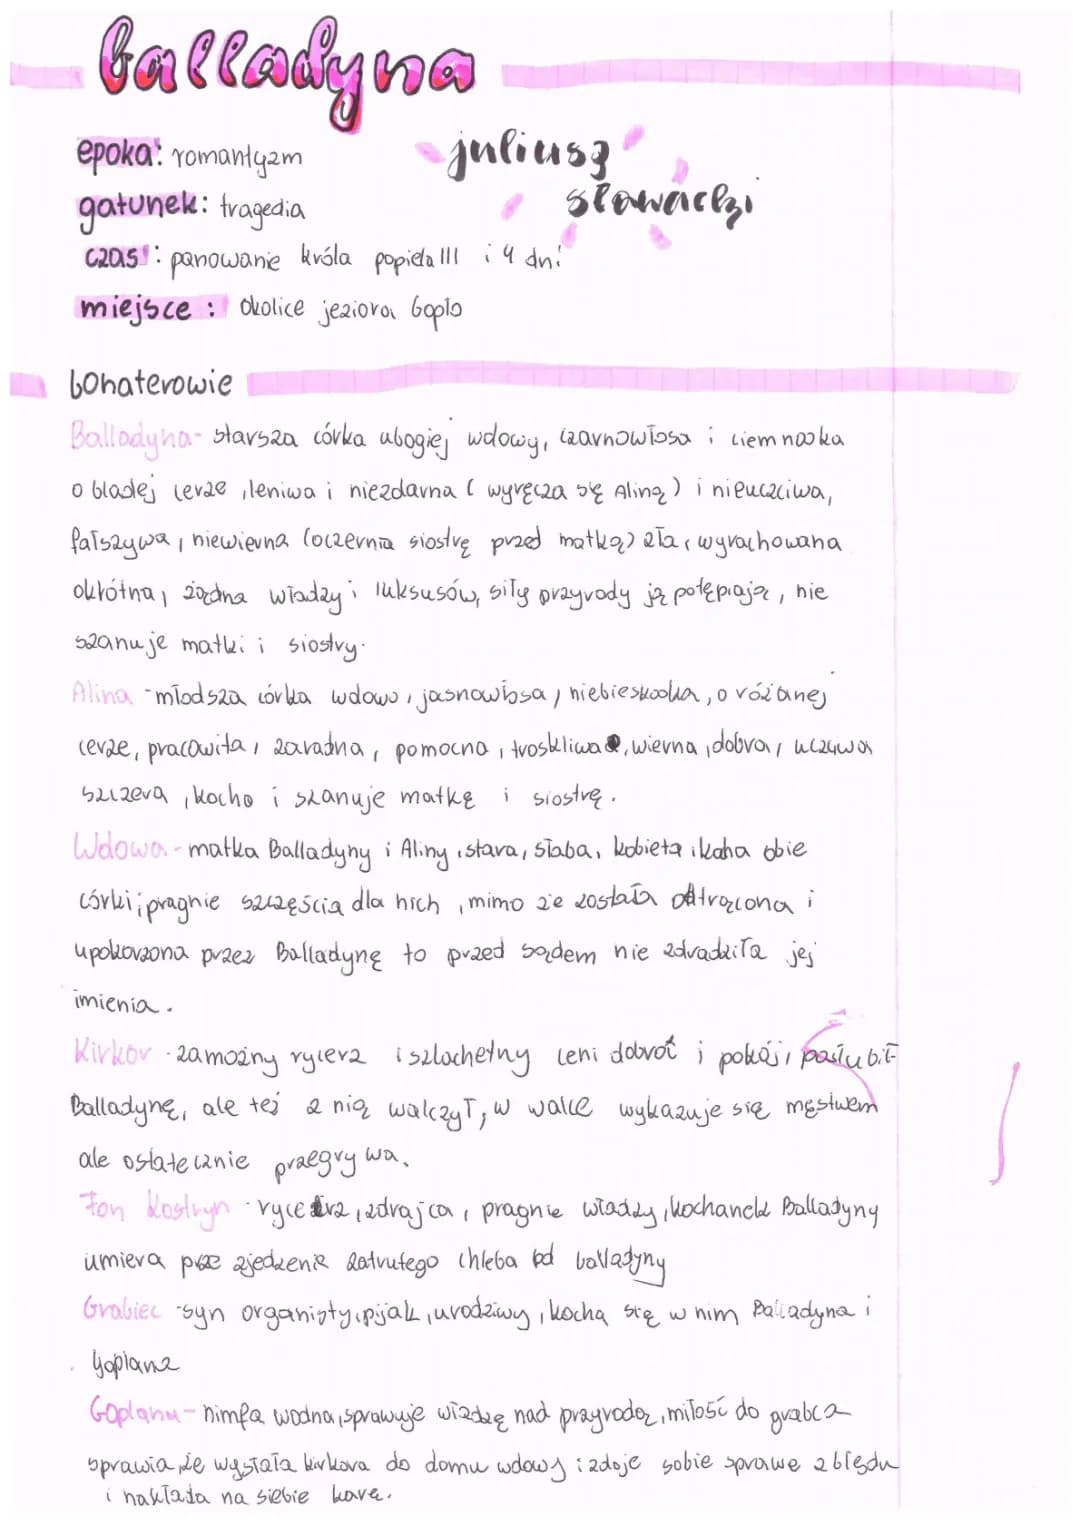 balladyna
juliusz
słowacki
epoka: romantyzm
gatunek: tragedia
czas: panowanie króla popiela III i 4 dni
miejsce: okolice jeziora Gopło
bohaterowie
Balladyna- starsza córka ubogiej wdowy, czarnowłosa i ciemnooka
o bladej cerze, leniwa i niezdarna ( wyręcza się Aliną ) i nieuczciwa,
fałszywa, niewierna (oczernia siostrę przed matką) zła, wyrachowana
okrótna, żądna władzy i luksusów, siły przyrody ją potępiają, nie
szanuje matki i siostry.
Alina -młodsza córka wdowo, jasnowłosa, niebieskooka, o różanej
cerze, pracowita, zaradna, pomocna, troskliwa, wierna, dobra, uczciwa
szczera, kocha i szanuje matkę i siostrę.
Wdowa- matka Balladyny i Aliny, stara, słaba, kobieta, koha obie
córki i pragnie szczęścia dla nich, mimo że została odtrącona i
upokorzona przez Balladynę to przed sądem nie zdradziła jej
imienia.
Kirkor -zamożny rycerz i szlachetny ceni dobroć i pokój, poślubił
Balladynę, ale też z nią walczył, w walce wykazuje się męstwem
ale ostatecznie przegrywa.
Fon Kostryn -rycerz, zdrajca, pragnie władzy, kochanek Balladyny
umiera prze zjedzenie zatrutego chleba od balladyny
Grabiec -syn organisty, pijak, urodziwy, kocha się w nim Balladyna i
goplana
Goplana- nimfa wodna, sprawuje władzę nad przyrodą, miłość do grabca
sprawia, że wysłała kirkora do domu wdowy i zdaje sobie sprawe z błędu
i nakłada na siebie kare.